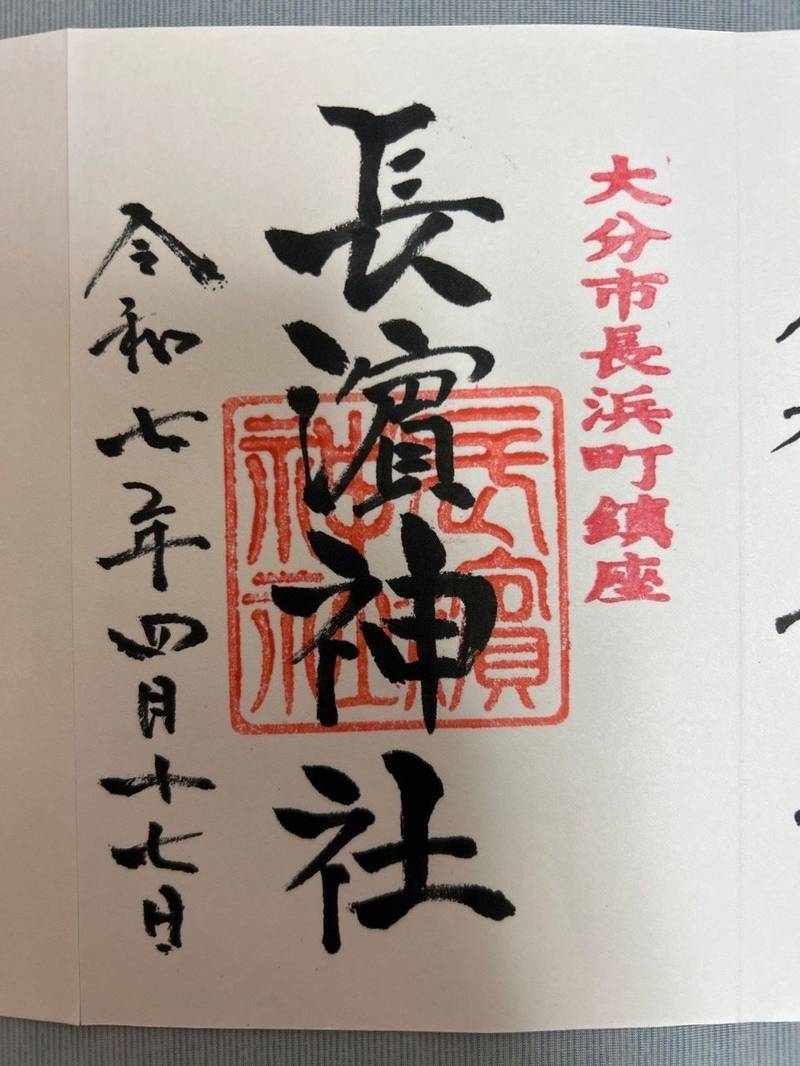 大分市長浜町鎮座
長濵神社
長濱神社
令和七年四月十七日